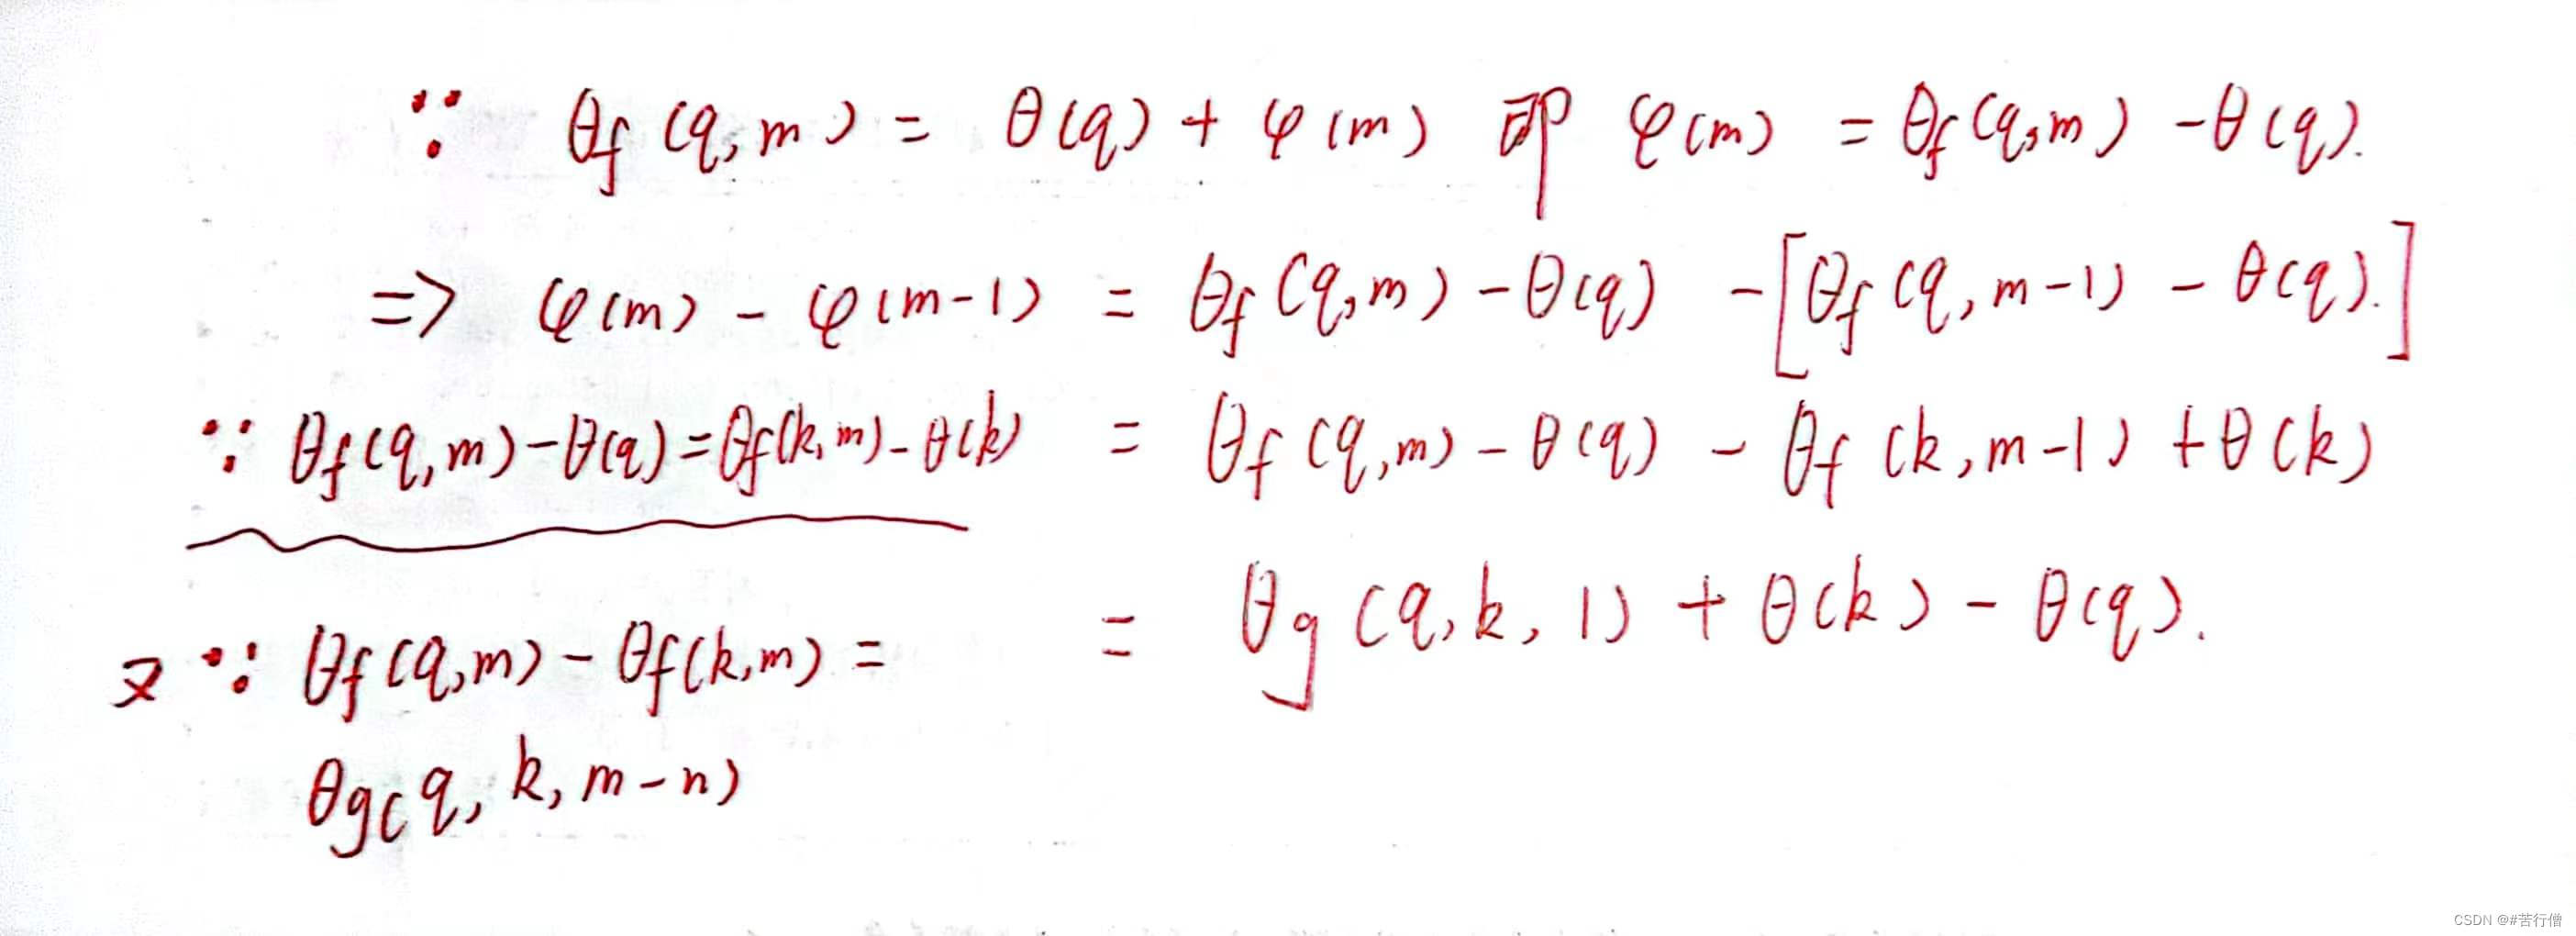 ∵ θf(q,m) = θ(q) + φ(m) 即 φ(m) = θf(q,m) - θ(q).
=> φ(m) - φ(m-1) = θf(q,m) - θ(q) - [θf(q,m-1) - θ(q).]
∵ θf(q,m) - θ(q) = θf(k,m) - θ(k) = θf(q,m) - θ(q) - θf(k,m-1) + θ(k)
= θg(q,k,1) + θ(k) - θ(q).
又 ∵ θf(q,m) - θf(k,m) =
θg(q,k,m-n)
CSDN @#苦行僧